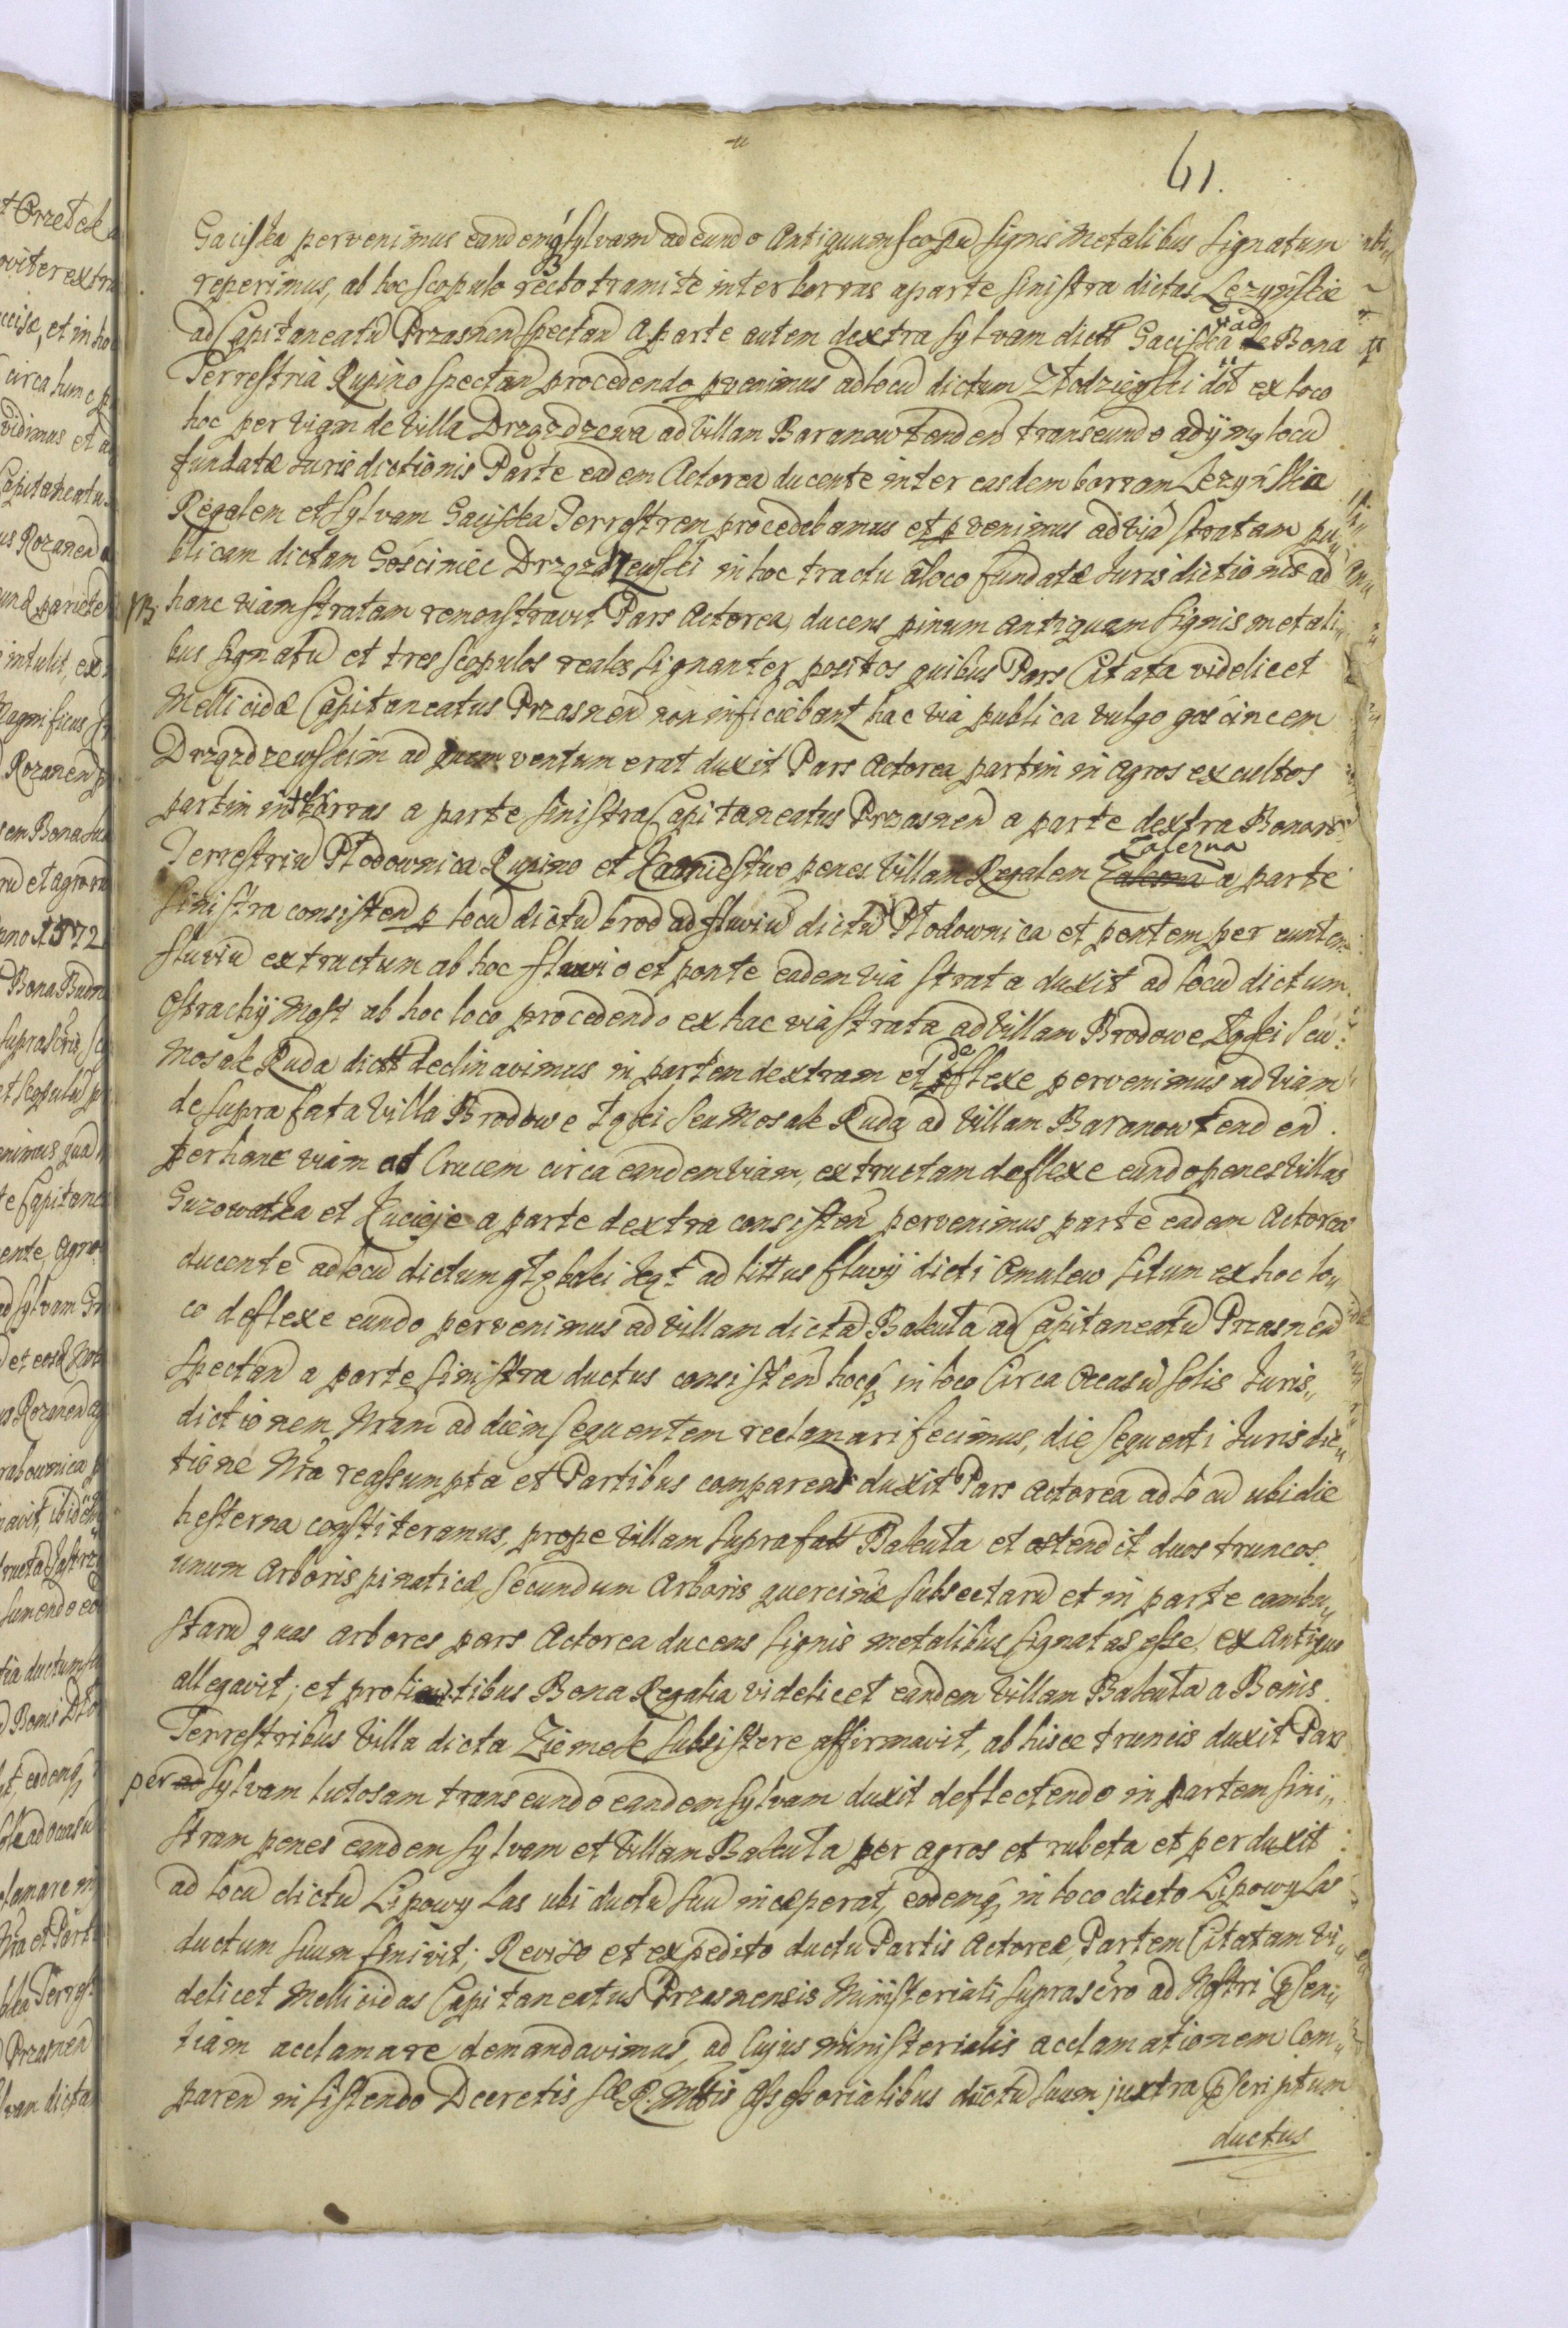 61.
Gaciska pervenimus eandemq sylvam adeundo Antiquum scopu signis Metalibus Signatum
reperimus, ab hoc scopulo recto tramite inter borras aparte sinistra dictas Lezyńskie
ad Capitaneatu Przasnen spectan a parte autem dextra sylvam dictt Gaciska ad Bona
Terrestria Rupino spectan procedendo pvenimus ad locu dictum Złodzieyski doł ex loco
hoc per viam de Villa Drzązdzewa ad Villam Baranow tenden transeundo
fundatæ Jurisdictionis Parte eadem Actorea ducente inter easdem borram Lezyńskia
Regalem et Sylvam Gaciska Terrestrem procedebamus et pvenimus ad via stratam pu„
blicam dictam Gosciniec Drzązdzewski in hoc tractu a loco fundatæ Jurisdictionis ad
hanc viam stratam remonstravit Pars Actorea, ducens pinum antiquam signis metali„
bus signatu et tres scopulos reales signanter positos quibus Pars Citata videlicet
Mellicidæ Capitaneatus Przasnen non inficiebant hac via publica vulgo goscincem
Drzązdzewskim ad quem ventum erat duxit Pars Actorea partim in agros excultos
partim inter borras a parte sinistra Capitaneatus Przasnen a parte dextra Bonor
Terrestriu Płodownica Rupino et penes Villam Regalem Zalezna a parte
sinistra consisten p locu dictu brod ad fluviu dictu Płodownica et pontem per eunten
fluviu extructum ab hoc fluvio et ponte eadem via strata duxit ad locu dictum
Ostrachij Most ab hoc loco procedendo ex hac via strata ad Villam Brodowe Łąki seu
Mosak Ruda dictt declinavimus in partem dextram et deflexe pervenimus ad viam
de supra fata Villa Brodowe Łąki seu Mosak Ruda ad Villam Baranow tenden
per hanc viam ad Crucem circa eandem viam, extructam deflexe eundo penes Villas
Guzowatka et Kucieje a parte dextra consisten pervenimus parte eadem Actorea
ducente ad locu dictum ad littus fluvij dicti Omulew situm ex hoc lo„
co deflexe eundo pervenimus ad villam dicta Bakuta ad Capitaneatu Przasnen
spectan a parte sinistra ductus consisten hocq in loco Circa Occasu solis Juris„
dictionem Nram ad diem sequentem reclamari fecimus, die sequenti Jurisdic„
tione Nra reassumpta et Partibus comparen duxit Pars Actorea ad locu ubi die
hesterna constiteramus, prope Villam suprafatt Bakuta et ostendit duos truncos
unum Arboris pinaticæ, secundum Arboris quercinæ subsectaru et in parte combu„
staru quas arbores pars Actorea ducens signis metalibus signatas esse ex Antiquo
allegavit; et Bona Regalia videlicet eandem Villam Bakuta a Bonis
Terrestribus Villa dicta Ziomek subsistere affirmavit, ab hisce truncis duxit Pars
per sylvam lutosam transeundo eandem sylvam duxit deflectendo in partem sini„
stram penes eandem sylvam et Villam Bakuta per agros et rubeta et perduxit
ad locu dictu Lipowy Las ubi ductu suu incæperat, eodemq in loco dicto Lipowy Las
ductum suum finivit; Reviso et expedito ductu Partis Actoreæ, Partem Citatam vi„
delicet Mellicidas Capitaneatus Przasnensis Ministeriali suprascro ad Nostri psen„
tiam acclamare demandavimus, ad Cujus ministerialis acclamationem Com„
paren insistendo Decretis Assessorialibus ductu suum juxtra pscriptum
ductus